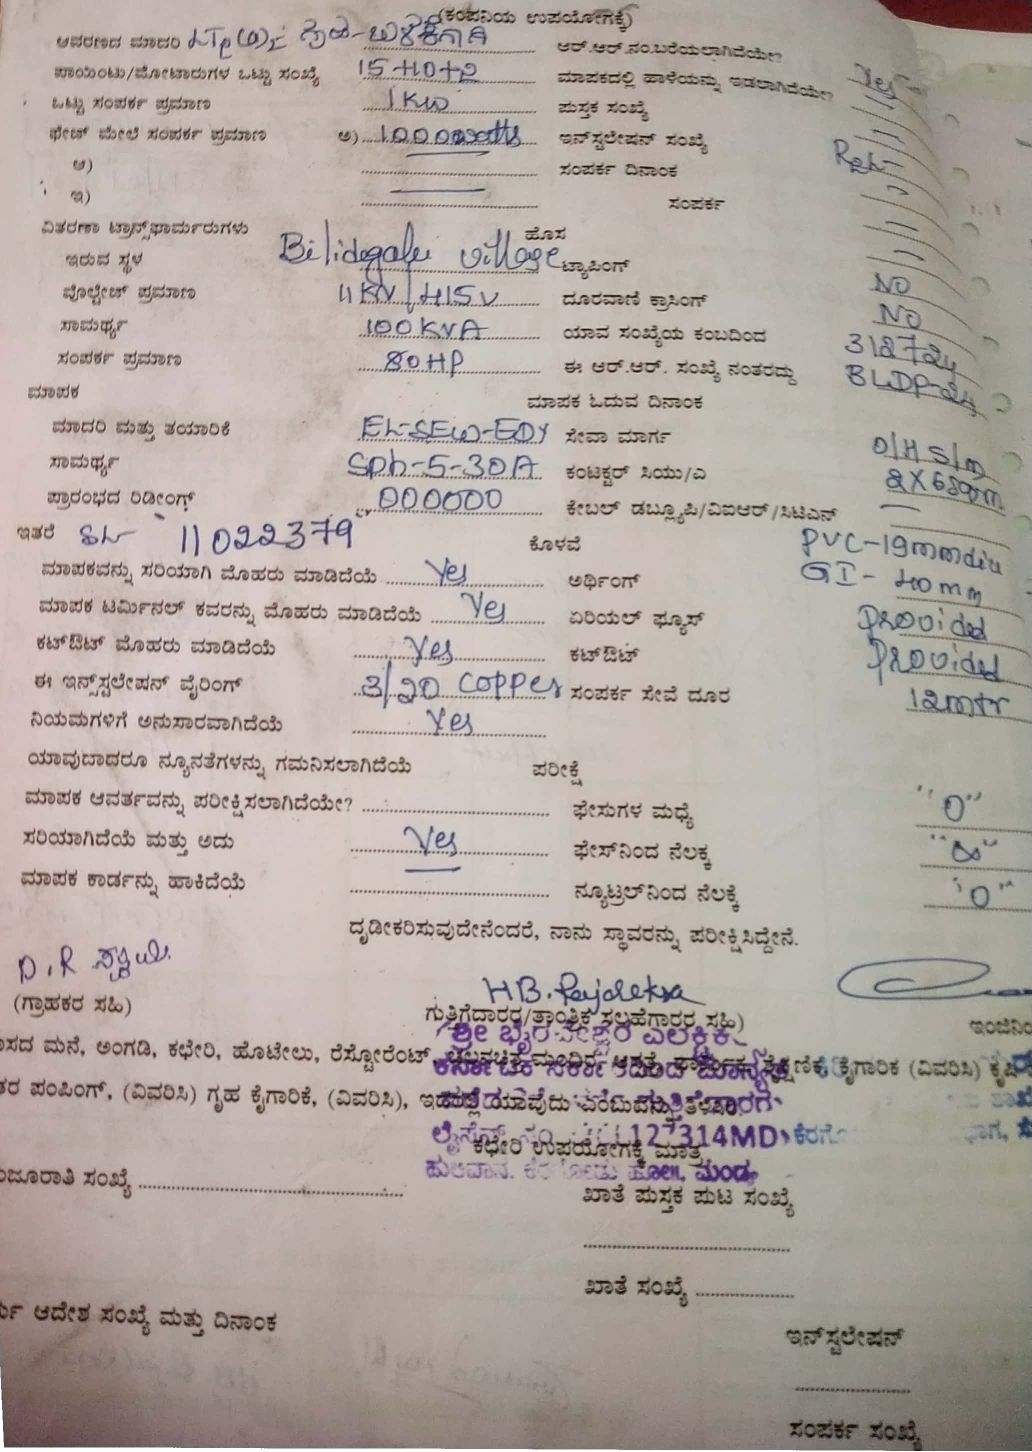 (ಕಂಪನಿಯ ಉಪಯೋಗಕ್ಕೆ)
ಆವರಣದ ಮಾದರಿ ಆರ್.ಆರ್.ನಂ.ಬರೆಯಲಾಗಿದೆಯೇ? Yes
ಪಾಯಿಂಟು/ಮೋಟಾರುಗಳ ಒಟ್ಟು ಸಂಖ್ಯೆ 15+10+2 ಮಾಪಕದಲ್ಲಿ ಹಾಳೆಯನ್ನು ಇಡಲಾಗಿದೆಯೇ?
ಒಟ್ಟು ಸಂಪರ್ಕ ಪ್ರಮಾಣ 1KW ಪುಸ್ತಕ ಸಂಖ್ಯೆ
ಫೇಚ್ ಮೇಲೆ ಸಂಪರ್ಕ ಪ್ರಮಾಣ ಅ) 1000watts ಇನ್‌ಸ್ಟಲೇಷನ್ ಸಂಖ್ಯೆ
ಆ) ಸಂಪರ್ಕ ದಿನಾಂಕ
ಇ) ಸಂಪರ್ಕ
ವಿತರಣಾ ಟ್ರಾನ್ಸ್‌ಫಾರ್ಮರುಗಳು ಹೊಸ
ಇರುವ ಸ್ಥಳ Bilidegalu village ಟ್ಯಾಪಿಂಗ್ No
ವೊಲ್ಟೇಚ್ ಪ್ರಮಾಣ 11KV/415V ದೂರವಾಣಿ ಕ್ರಾಸಿಂಗ್ No
ಸಾಮರ್ಥ್ಯ 100KVA ಯಾವ ಸಂಖ್ಯೆಯ ಕಂಬದಿಂದ 312724
ಸಂಪರ್ಕ ಪ್ರಮಾಣ 80HP ಈ ಆರ್.ಆರ್. ಸಂಖ್ಯೆ ನಂತರದ್ದು BLDP-24
ಮಾಪಕ ಮಾಪಕ ಓದುವ ದಿನಾಂಕ
ಮಾದರಿ ಮತ್ತು ತಯಾರಿಕೆ ಸೇವಾ ಮಾರ್ಗ O/H S/M
ಸಾಮರ್ಥ್ಯ Sph-5-30A ಕಂಟಕ್ಟರ್ ಸಿಯು/ಎ 2X6sqmm
ಪ್ರಾರಂಭದ ರಿಡೀಂಗ್ 000000 ಕೇಬಲ್ ಡಬ್ಲ್ಯೂಪಿ/ವಿಐಆರ್/ಸಿಟಿಎನ್
ಇತರೆ SL- 11022379 ಕೊಳವೆ PVC-19mmdia
ಮಾಪಕವನ್ನು ಸರಿಯಾಗಿ ಮೊಹರು ಮಾಡಿದೆಯೆ Yes ಅರ್ಥಿಂಗ್ GI-40mm
ಮಾಪಕ ಟರ್ಮಿನಲ್ ಕವರನ್ನು ಮೊಹರು ಮಾಡಿದೆಯೆ Yes ಏರಿಯಲ್ ಫ್ಯೂಸ್ Provided
ಕಟ್‌ಔಟ್ ಮೊಹರು ಮಾಡಿದೆಯೆ Yes ಕಟ್‌ಔಟ್ Provided
ಈ ಇನ್‌ಸ್ಟಲೇಷನ್ ವೈರಿಂಗ್ 3/20 copper ಸಂಪರ್ಕ ಸೇವೆ ದೂರ 12mtr
ನಿಯಮಗಳಿಗೆ ಅನುಸಾರವಾಗಿದೆಯೆ Yes
ಯಾವುದಾದರೂ ನ್ಯೂನತೆಗಳನ್ನು ಗಮನಿಸಲಾಗಿದೆಯೆ ಪರೀಕ್ಷೆ
ಮಾಪಕ ಆವರ್ತವನ್ನು ಪರೀಕ್ಷಿಸಲಾಗಿದೆಯೇ? ಫೇಸುಗಳ ಮಧ್ಯೆ "0"
ಸರಿಯಾಗಿದೆಯೆ ಮತ್ತು ಅದು Yes ಫೇಸ್‌ನಿಂದ ನೆಲಕ್ಕೆ "∞"
ಮಾಪಕ ಕಾರ್ಡನ್ನು ಹಾಕಿದೆಯೆ ನ್ಯೂಟ್ರಲ್‌ನಿಂದ ನೆಲಕ್ಕೆ "0"
ದೃಡೀಕರಿಸುವುದೇನೆಂದರೆ, ನಾನು ಸ್ಥಾವರನ್ನು ಪರೀಕ್ಷಿಸಿದ್ದೇನೆ.
(ಗ್ರಾಹಕರ ಸಹಿ) ಗುತ್ತಿಗೆದಾರರ/ತಾಂತ್ರಿಕ ಸಲಹೆಗಾರರ ಸಹಿ)
ಮನೆ, ಅಂಗಡಿ, ಕಛೇರಿ, ಹೊಟೇಲು, ರೆಸ್ಟೋರೆಂಟ್, ಕೈಗಾರಿಕ (ವಿವರಿಸಿ) ಕೃಷಿ
ಪಂಪಿಂಗ್, (ವಿವರಿಸಿ) ಗೃಹ ಕೈಗಾರಿಕೆ, (ವಿವರಿಸಿ), ಯಾವುದು ಎಂಬುವನ್ನು
127314MD
ಕಛೇರಿ ಉಪಯೋಗಕ್ಕೆ ಮಾತ್ರ
ಸಂಖ್ಯೆ ಖಾತೆ ಪುಸ್ತಕ ಪುಟ ಸಂಖ್ಯೆ
ಖಾತೆ ಸಂಖ್ಯೆ
ಆದೇಶ ಸಂಖ್ಯೆ ಮತ್ತು ದಿನಾಂಕ
ಇನ್‌ಸ್ಟಲೇಷನ್
ಸಂಪರ್ಕ ಸಂಖ್ಯೆ